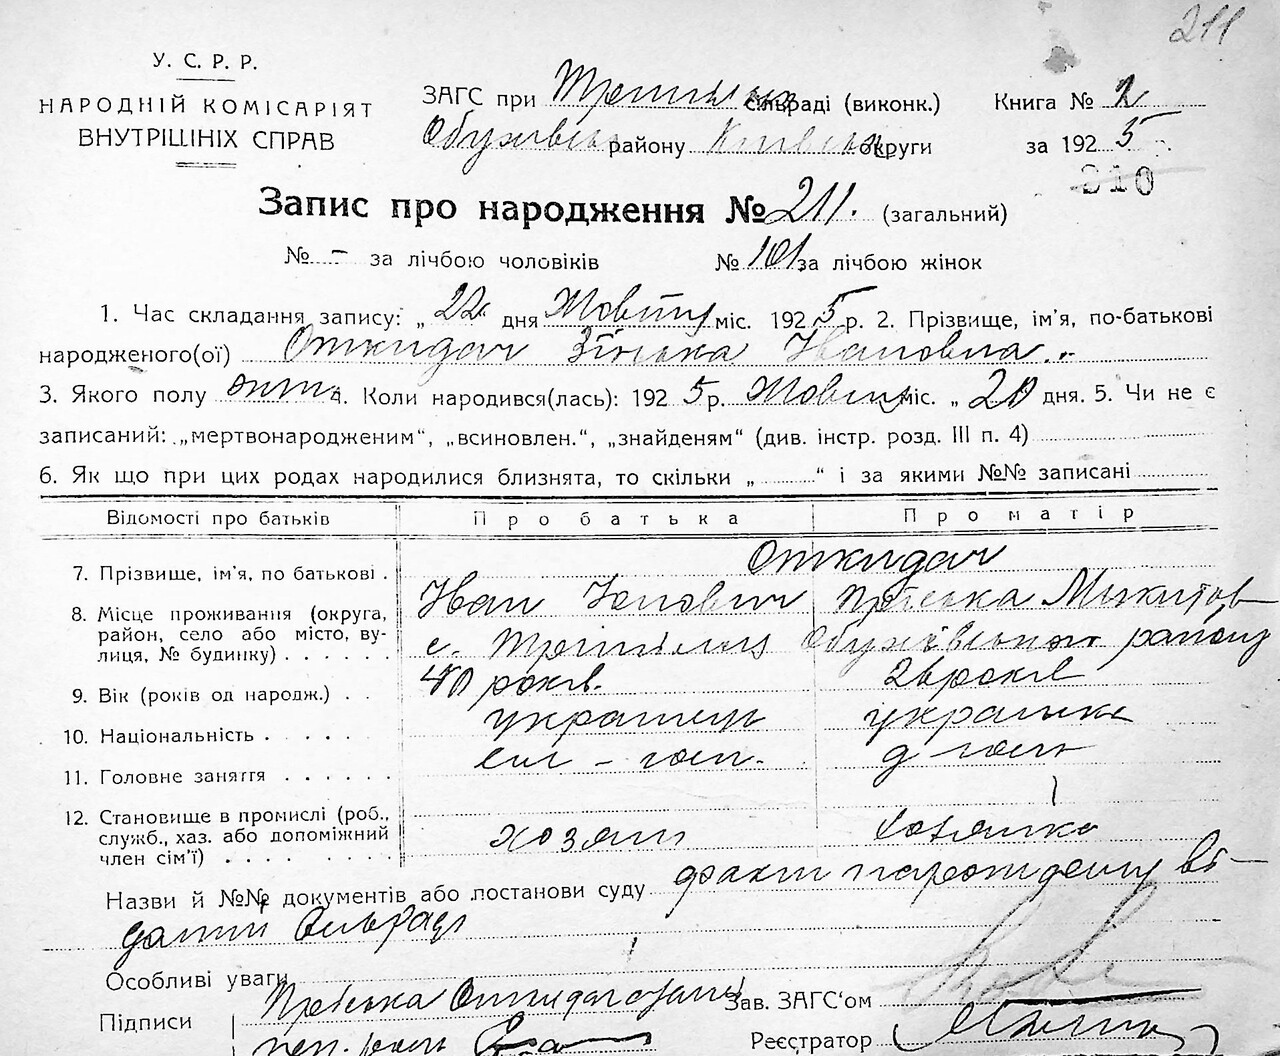 211
У. С. Р. Р.
НАРОДНІЙ КОМІСАРІЯТ
ВНУТРІШНІХ СПРАВ
ЗАГС при сільраді (виконк.) Книга № 2
Обухівськ району Київськ округи за 1925 р.
210
Запис про народження № 211. (загальний)
№ – за лічбою чоловіків № 101 за лічбою жінок
1. Час складання запису: „22 дня Жовтня міс. 1925 р. 2. Прізвище, ім'я, по-батькові
народженого(ої) Откидач Зінька Івановна
3. Якого полу жін. 4. Коли народився(лась): 1925 р. Жовтня міс. „20 дня. 5. Чи не є
записаний: „мертвонародженим“, „всиновлен.“, „знайденям“ (див. інстр. розд. III п. 4)
6. Як що при цих родах народилися близнята, то скільки „ “ і за якими №№ записані
Відомості про батьків Про батька Про матір
7. Прізвище, ім'я, по батькові . Откидач
Іван Юнович Прівська Микитов
8. Місце проживання (округа,
район, село або місто, ву-
лиця, № будинку) . . . . . . с. Трипілля Обухівського району
9. Вік (років од народж.) . . 40 років. 26 років
10. Національність . . . . . українець українка
11. Головне заняття . . . . . . сіл – госп. д госп
12. Становище в промислі (роб.,
служб., хаз. або допоміжний
член сім'ї) . . . . . . . . хозяин хозяйка
Назви й №№ документів або постанови суду факт народження ві–
домий Сільраді
Особливі уваги
Підписи Откидач
Зав. ЗАГС'ом
Реєстратор